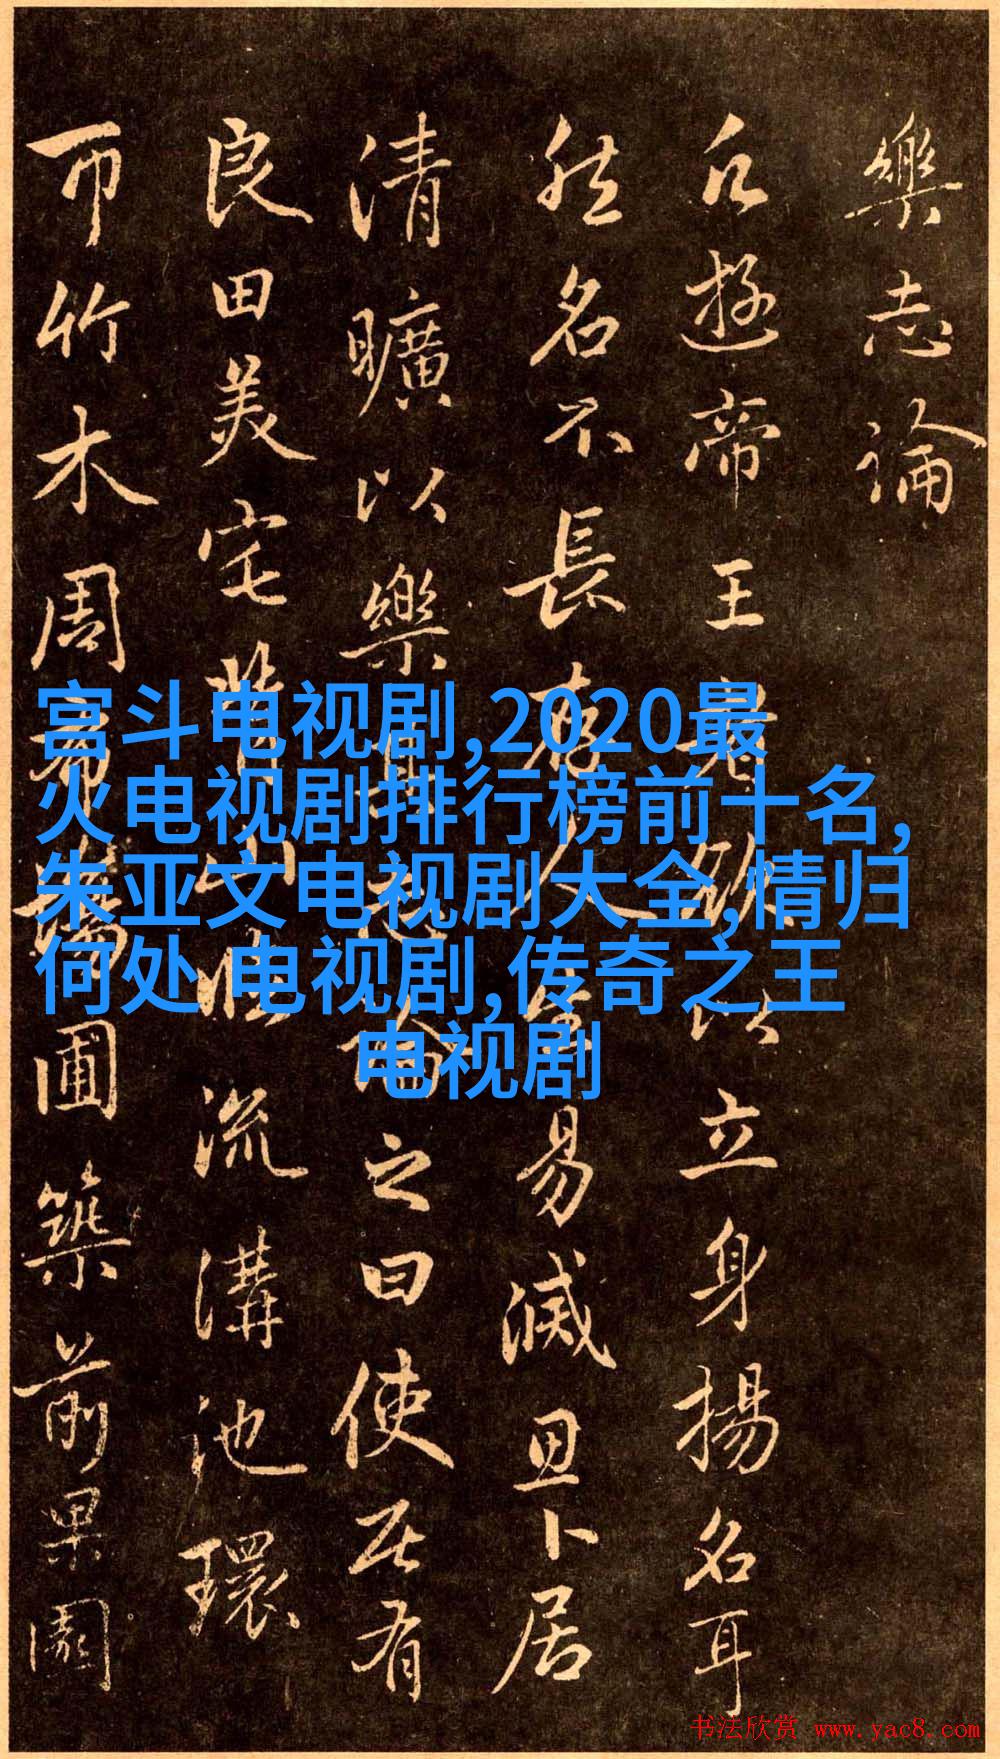 樂志論
凡遊帝王者欲以立身揚名耳
然名不長存人生易滅思卜居
清曠以樂其志論之曰使居有
良田美宅背山臨流溝池環
帀竹木周布場圃築前果園
宫斗电视剧,2020最
火电视剧排行榜前十名,
朱亚文电视剧大全,情归
何处 电视剧,传奇之王
电视剧
书法欣赏 www.yac8.com